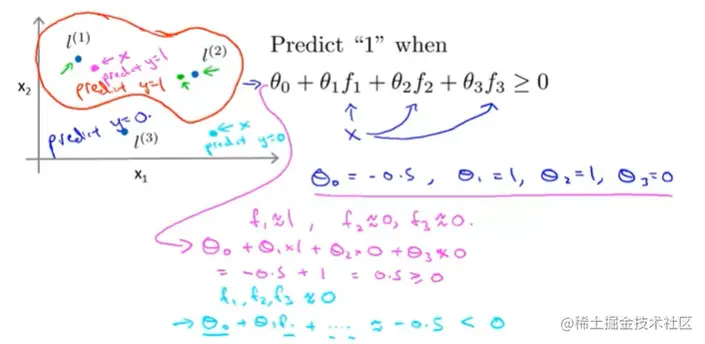 l⁽¹⁾
x
predict y=1
l⁽²⁾
predict y=1
x₂
predict y=0.
l⁽³⁾
x
predict y=0
x₁
Predict “1” when
θ₀ + θ₁f₁ + θ₂f₂ + θ₃f₃ ≥ 0
x
θ₀ = -0.5, θ₁=1, θ₂=1, θ₃=0
f₁≈1, f₂≈0, f₃≈0.
θ₀ + θ₁×1 + θ₂×0 + θ₃×0
= -0.5 + 1 = 0.5 ≥ 0
f₁, f₂, f₃ ≈ 0
→ θ₀ + θ₁f₁ + .... ≈ -0.5 < 0
@稀土掘金技术社区